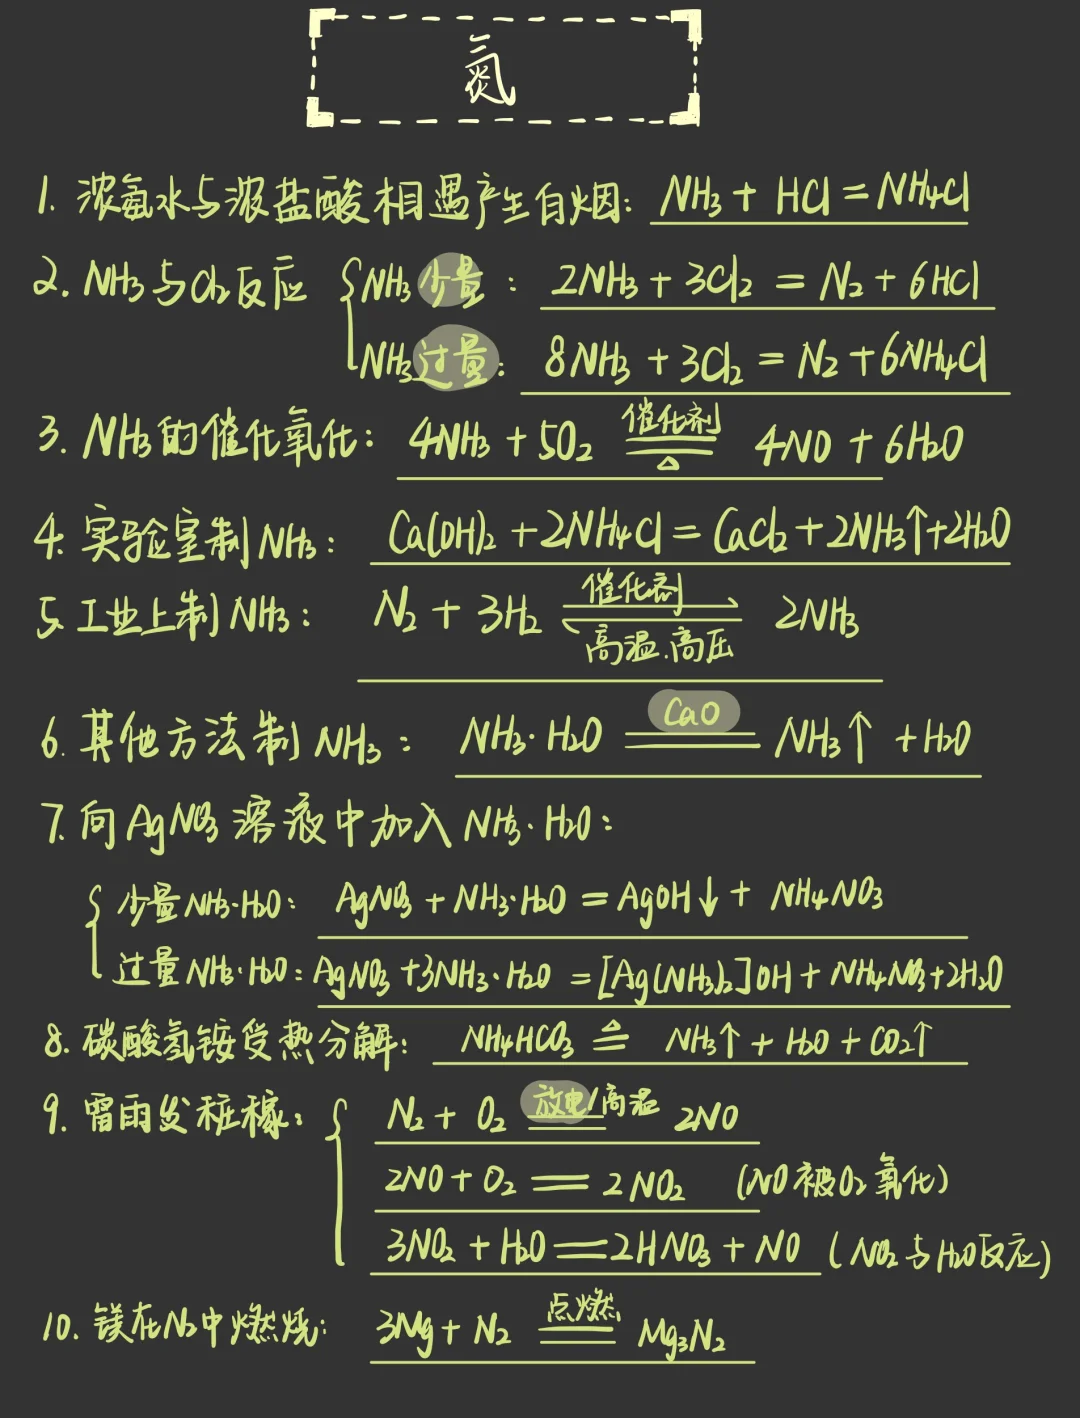 氮
1. 浓氨水与浓盐酸相遇产生白烟: NH₃ + HCl = NH₄Cl
2. NH₃与Cl₂反应 { NH₃少量: 2NH₃ + 3Cl₂ = N₂ + 6HCl
NH₃过量: 8NH₃ + 3Cl₂ = N₂ + 6NH₄Cl
3. NH₃的催化氧化: 4NH₃ + 5O₂ 催化剂══△ 4NO + 6H₂O
4. 实验室制NH₃: Ca(OH)₂ + 2NH₄Cl = CaCl₂ + 2NH₃↑ + 2H₂O
5. 工业上制NH₃: N₂ + 3H₂ 催化剂⇌高温.高压 2NH₃
6. 其他方法制NH₃: NH₃·H₂O CaO══ NH₃↑ + H₂O
7. 向AgNO₃溶液中加入NH₃·H₂O:
{ 少量NH₃·H₂O: AgNO₃ + NH₃·H₂O = AgOH↓ + NH₄NO₃
过量NH₃·H₂O: AgNO₃ + 3NH₃·H₂O = [Ag(NH₃)₂]OH + NH₄NO₃ + 2H₂O
8. 碳酸氢铵受热分解: NH₄HCO₃ △══ NH₃↑ + H₂O + CO₂↑
9. 雷雨发庄稼: { N₂ + O₂ 放电/高温══ 2NO
2NO + O₂ ══ 2NO₂ (NO被O₂氧化)
3NO₂ + H₂O ══ 2HNO₃ + NO (NO₂与H₂O反应)
10. 镁在N₂中燃烧: 3Mg + N₂ 点燃══ Mg₃N₂